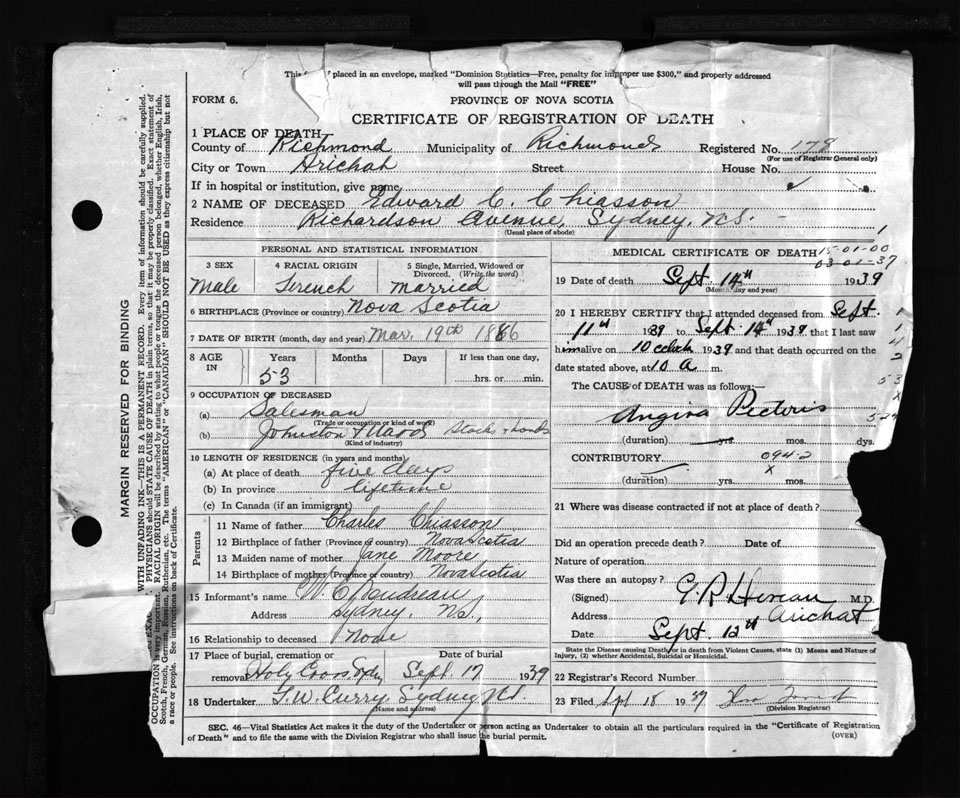 This placed in an envelope, marked "Dominion Statistics—Free, penalty for improper use $300," and properly addressed
will pass through the Mail "FREE"
FORM 6.
PROVINCE OF NOVA SCOTIA
CERTIFICATE OF REGISTRATION OF DEATH
1 PLACE OF DEATH
County of Richmond Municipality of Richmond Registered No. 178
(For use of Registrar General only)
City or Town Arichat Street House No.
If in hospital or institution, give name
2 NAME OF DECEASED Edward C. Chiasson
Residence Richardson Avenue, Sydney, N.S.
(Usual place of abode)
PERSONAL AND STATISTICAL INFORMATION
3 SEX
Male
4 RACIAL ORIGIN
French
5 Single, Married, Widowed or
Divorced. (Write the word)
married
6 BIRTHPLACE (Province or country) Nova Scotia
7 DATE OF BIRTH (month, day and year) Mar. 19th 1886
8 AGE
IN
Years Months Days If less than one day,
53 hrs. or min.
9 OCCUPATION OF DECEASED
(a) Salesman
(Trade or occupation or kind of work)
(b) Johnston & Ward Stocks & bonds
(Kind of industry)
10 LENGTH OF RESIDENCE (in years and months)
(a) At place of death five days
(b) In province lifetime
(c) In Canada (if an immigrant)
Parents
11 Name of father Charles Chiasson
12 Birthplace of father (Province or country) Nova Scotia
13 Maiden name of mother Jane Moore
14 Birthplace of mother (Province or country) Nova Scotia
15 Informant's name W. C. Boudreau
Address Sydney, N.S.,
16 Relationship to deceased None
17 Place of burial, cremation or Date of burial
removal Holy Cross Sydney Sept. 17 1939
18 Undertaker T. W. Curry, Sydney
(Name and address)
MEDICAL CERTIFICATE OF DEATH 15-01-00
03-01-37
19 Date of death Sept 14th 1939
(Month, day and year)
20 I HEREBY CERTIFY that I attended deceased from Sept.
11th 1939 to Sept. 14th 1939 that I last saw
him alive on 10 oclock 1939 and that death occurred on the
date stated above, at 10 A m.
The CAUSE of DEATH was as follows:—
Angina Pectoris
(duration) yrs. mos. dys.
CONTRIBUTORY 094-2
x
(duration) yrs. mos.
21 Where was disease contracted if not at place of death?
Did an operation precede death? Date of
Nature of operation
Was there an autopsy?
(Signed) M.D.
Address Arichat
Date Sept. 12th
State the Disease causing Death, or in death from Violent Causes, state (1) Means and Nature of
Injury, (2) whether Accidental, Suicidal or Homicidal.
22 Registrar's Record Number
23 Filed Sept 18 1939
(Division Registrar)
SEC. 46—Vital Statistics Act makes it the duty of the Undertaker or person acting as Undertaker to obtain all the particulars required in the "Certificate of Registration
of Death" and to file the same with the Division Registrar who shall issue the burial permit.
(OVER)
MARGIN RESERVED FOR BINDING
WITH UNFADING INK—THIS IS A PERMANENT RECORD. Every item of information should be carefully supplied.
PHYSICIANS should STATE CAUSE OF DEATH in plain terms, so that it may be properly classified. Exact statement of
OCCUPATION is very important. RACIAL ORIGIN will be described by stating to what people or tongue the deceased person belonged, whether English, Irish,
Scotch, French, German, Russian, Ruthenian, etc. The terms "AMERICAN" or "CANADIAN" SHOULD NOT BE USED as they express citizenship but not
a race or people. See instructions on back of Certificate.